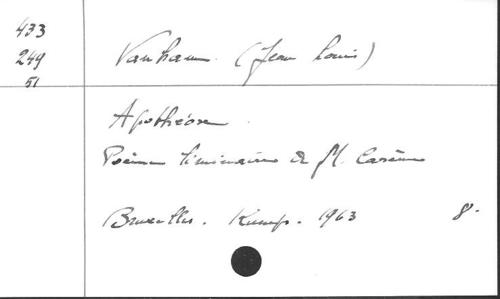 433
249
51
Vanham. (Jean Louis)
Apothéose.
Poème liminaire de M. Carême
Bruxelles. Kumps. 1963 8°.